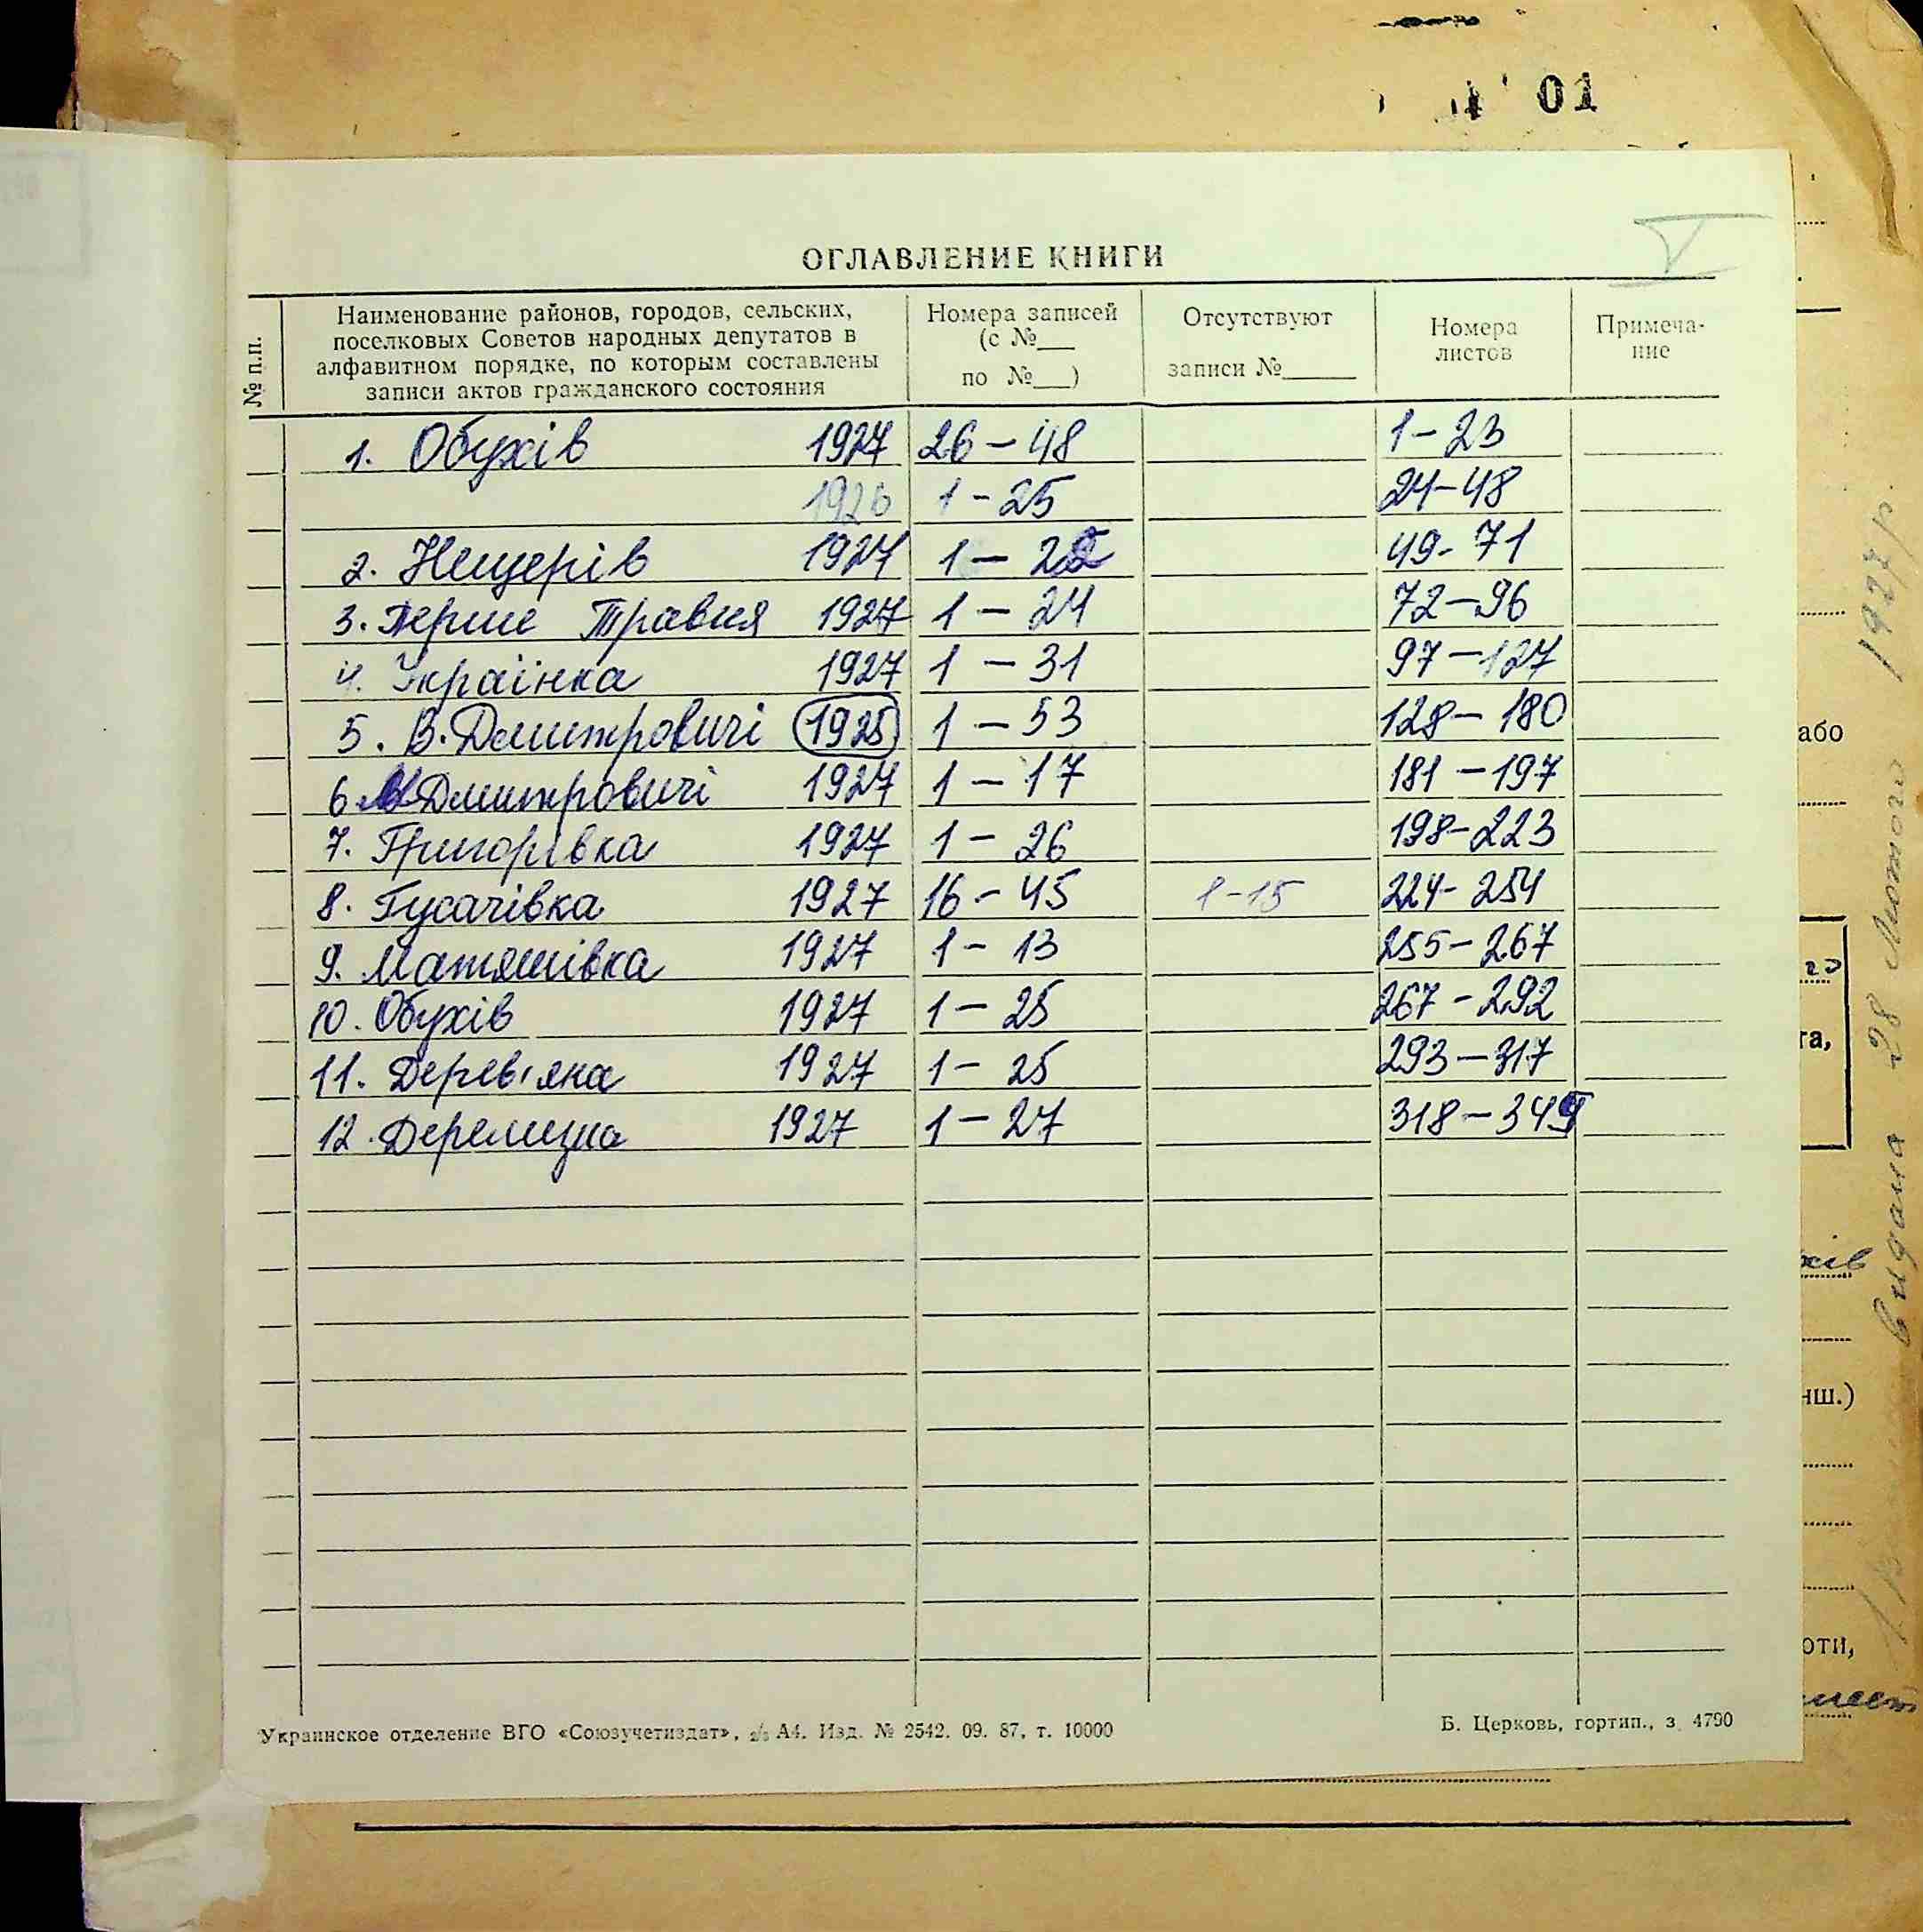 01
V
ОГЛАВЛЕНИЕ КНИГИ
№ п.п.
Наименование районов, городов, сельских, поселковых Советов народных депутатов в алфавитном порядке, по которым составлены записи актов гражданского состояния
Номера записей (с №___ по №___)
Отсутствуют записи №______
Номера листов
Примечание
1. Обухів 1927 26-48 1-23
1926 1-25 24-48
2. Нещерів 1927 1-22 49-71
3. Перше Травня 1927 1-24 72-96
4. Українка 1927 1-31 97-127
5. В. Дмитровичі 1925 1-53 128-180
6. М Дмитровичі 1927 1-17 181-197
7. Григорівка 1927 1-26 198-223
8. Гусачівка 1927 16-45 1-15 224-254
9. Матяшівка 1927 1-13 255-267
10. Обухів 1927 1-25 267-292
11. Дерев'яна 1927 1-25 293-317
12. Деремезна 1927 1-27 318-345
Украинское отделение ВГО «Союзучетиздат», з/з А4. Изд. № 2542. 09. 87, т. 10000
Б. Церковь, гортип., з. 4790
або
го
та,
хів
нш.)
оти,
видана 28 Лютого 1927 р.